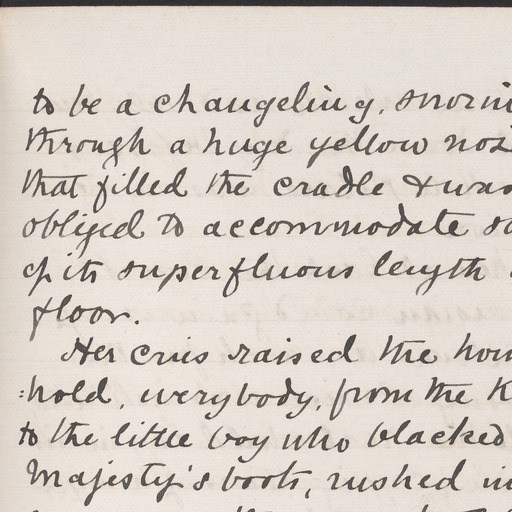 to be a changeling, snorin
through a huge yellow nos
that filled the cradle & was
obliged to accommodate so
of its superfluous length
floor.
Her cries raised the hou
=hold, everybody, from the K
to the little boy who blacked
Majesty's boots, rushed in